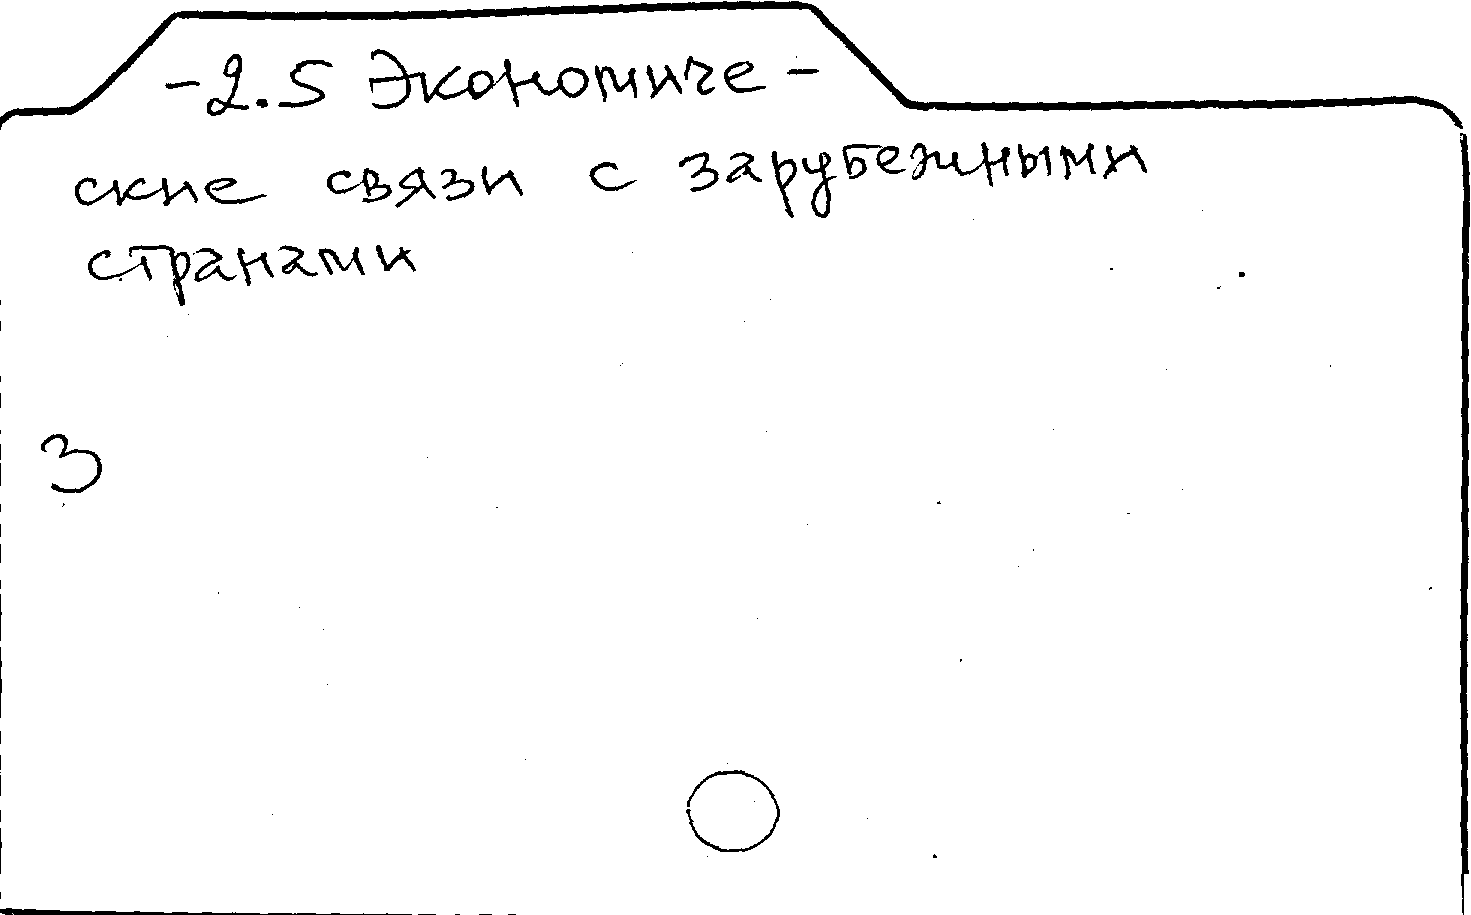 -2.5 Экономиче-
ские связи с зарубежными
странами
3